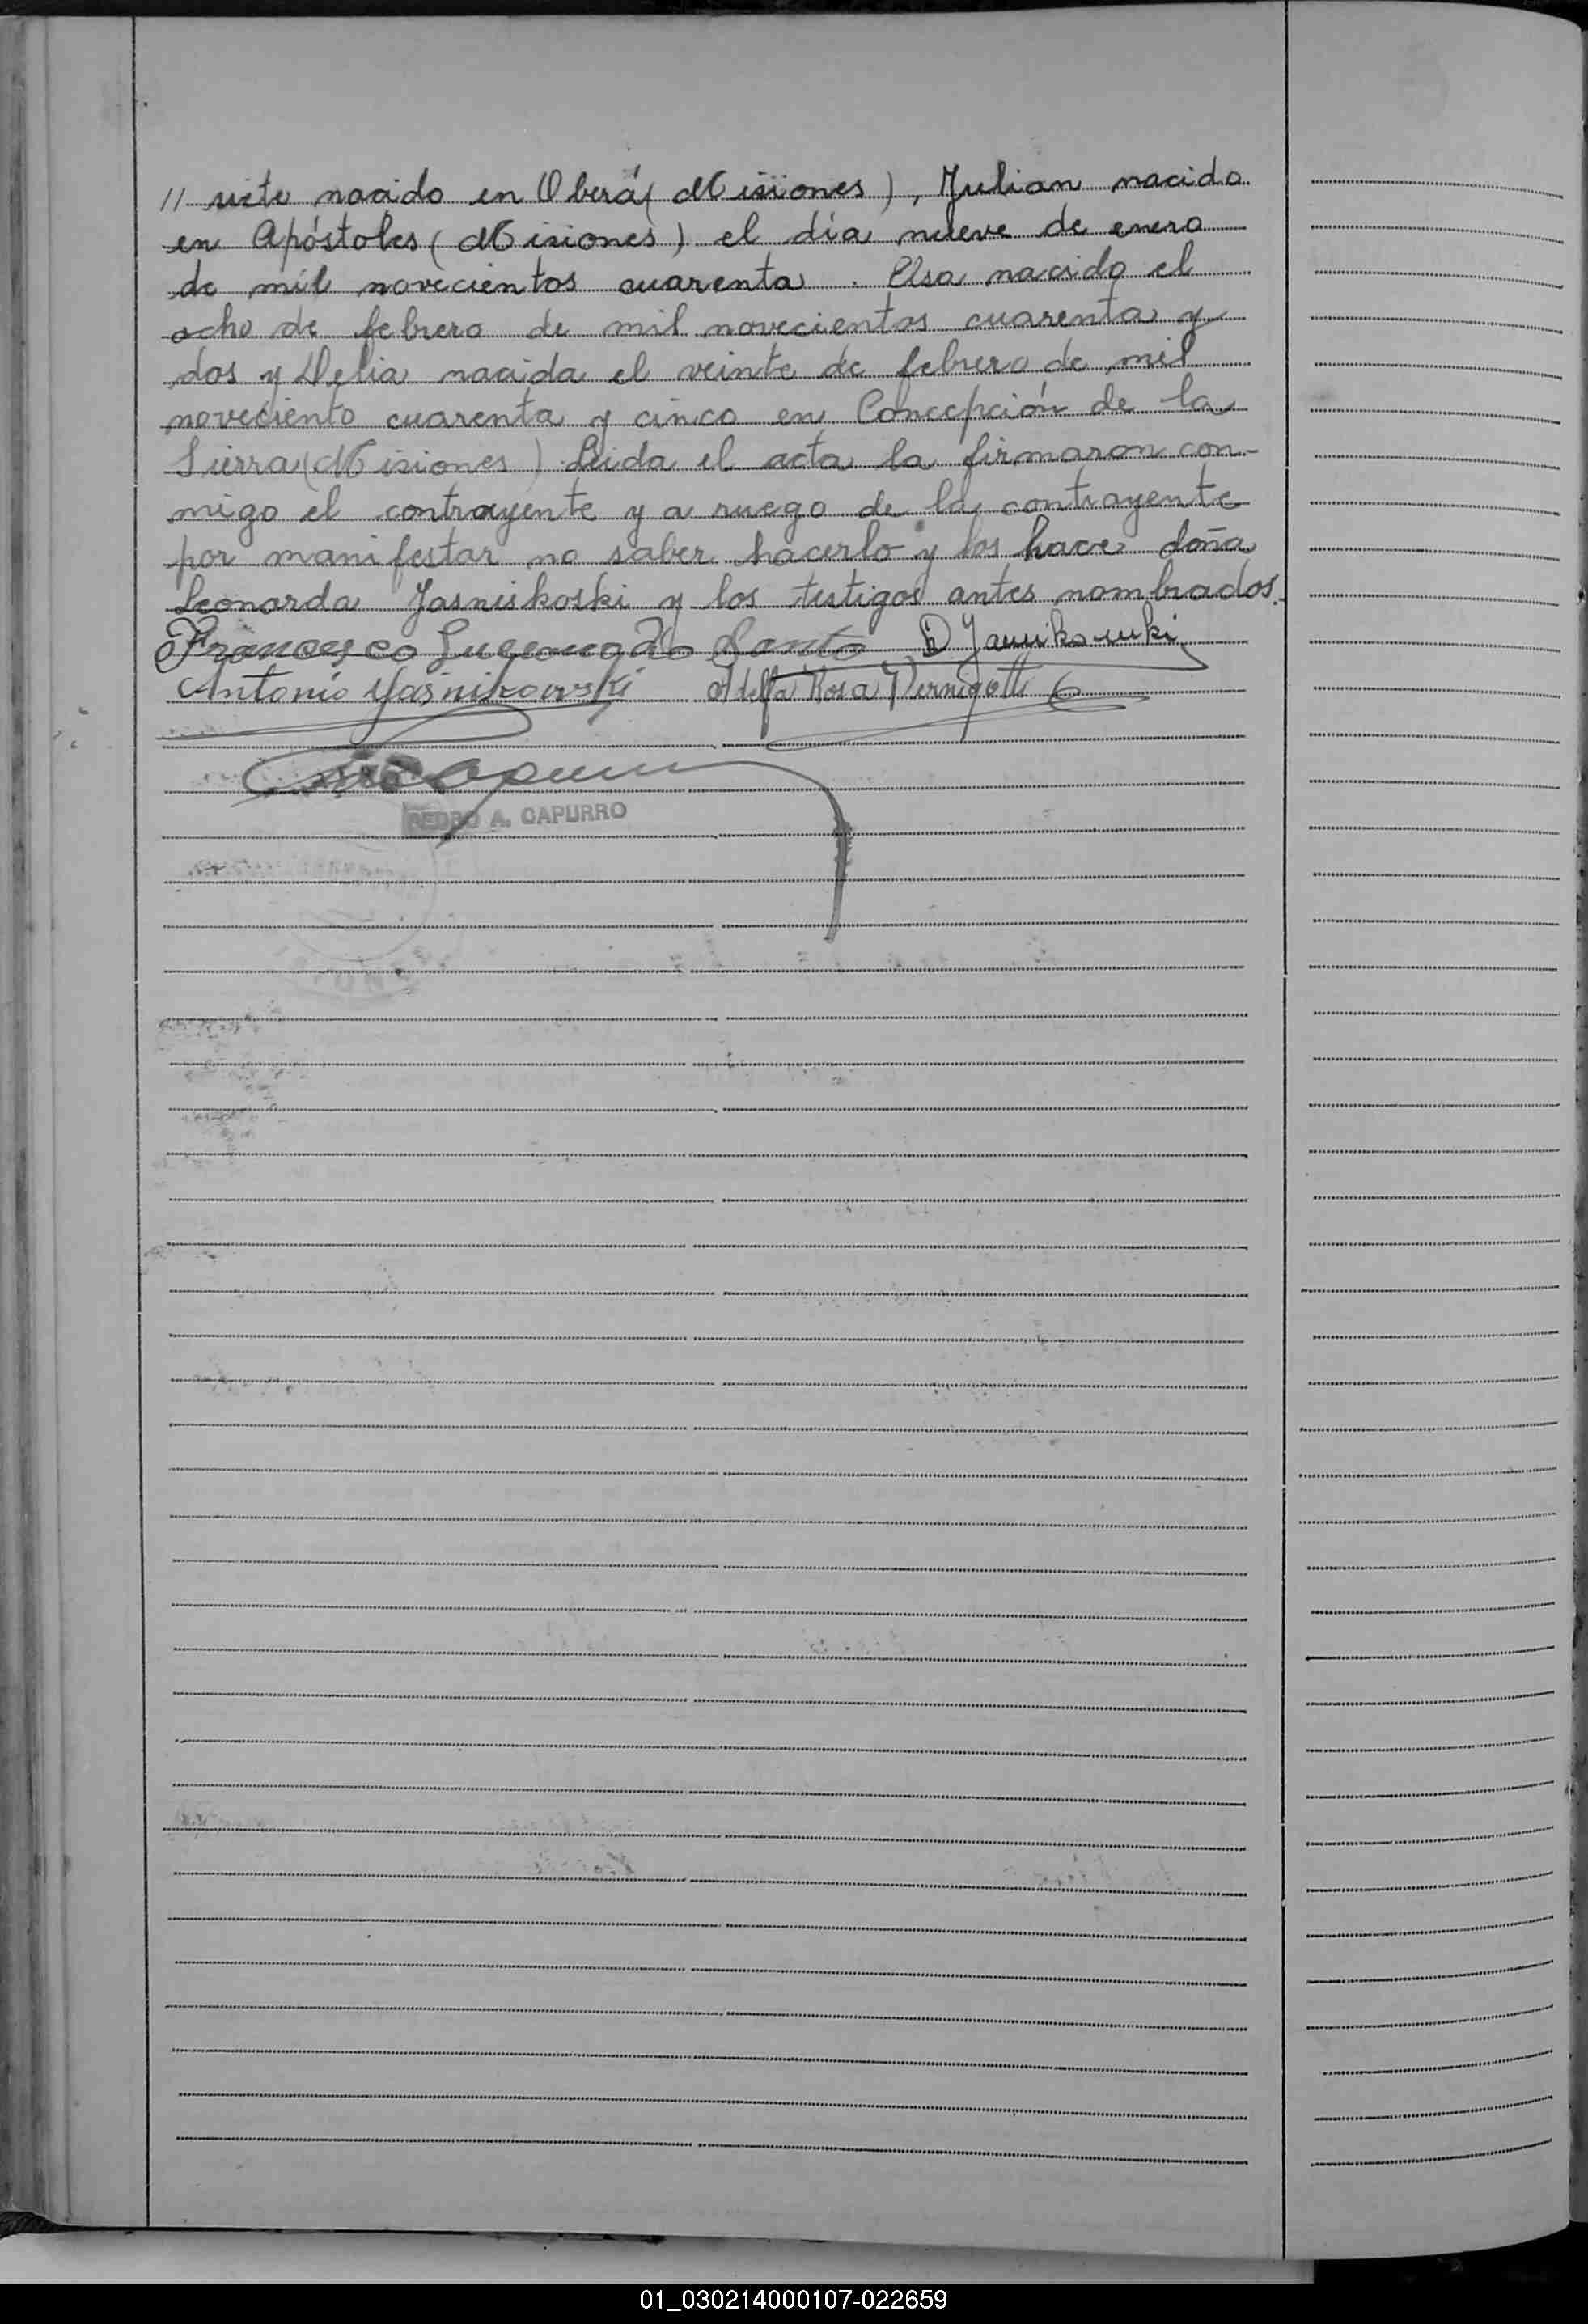 // siete nacido en Oberá (Misiones), Julian nacido
en Apóstoles (Misiones) el día nueve de enero
de mil novecientos cuarenta. Elsa nacido el
ocho de febrero de mil novecientos cuarenta y
dos y Delia nacida el veinte de febrero de mil
noveciento cuarenta y cinco en Concepción de la
Sierra (Misiones). Leida el acta la firmaron con-
migo el contrayente y a ruego de la contrayente
por manifestar no saber hacerlo y los hace doña
Leonarda Jasniskoski y los testigos antes nombrados.
Francesco Santo
Antonio Yasnikowski Adelfa Rosa Pernigotti
PEDRO A. CAPURRO
01_030214000107-022659